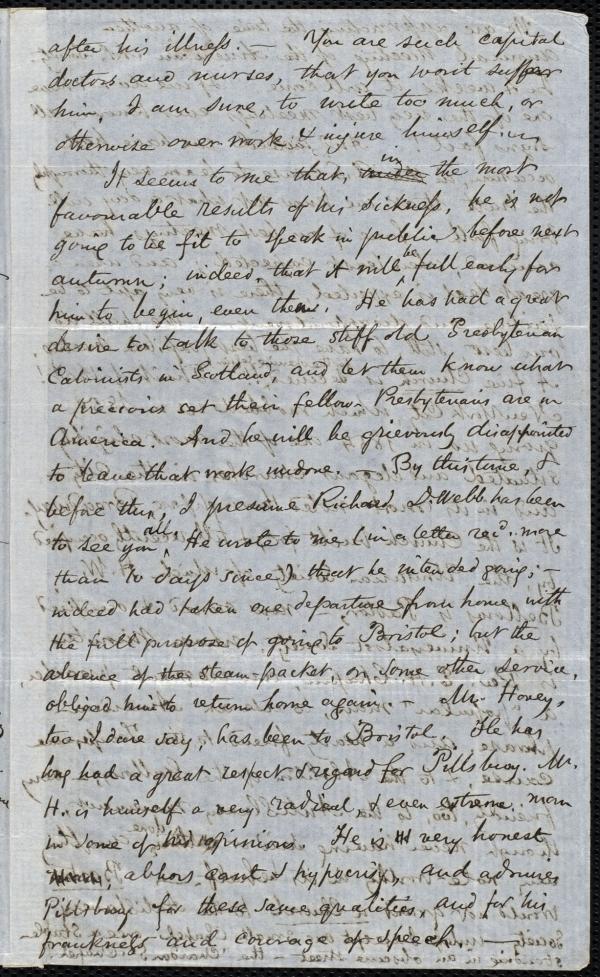 after his illness. — You are such capital
doctors and nurses, that you won't suffer
him, I am sure, to write too much, or
otherwise over work & injure himself.
It seems to me that, in the most
favourable results of his sickness, he is not
going to be fit to speak in public before next
autumn; indeed, that it will be full early for
him to begin, even then. He has had a great
desire to talk to those stiff old Presbyterian
Calvinists in Scotland, and let them know what
a precious set their fellow-Presbyterians are in
America. And he will be grievously disappointed
to leave that work undone. — By this time, &
before this, I presume Richard D. Webb has been
to see you all. He wrote to me (in a letter recd. more
than 10 days since) that he intended going; —
indeed had taken one departure from home, with
the full purpose of going to Bristol; but the
absence of the steam-packet, on some other service,
obliged him to return home again. — Mr. Hovey,
too, I dare say, has been to Bristol. He has
long had a great respect & regard for Pillsbury. Mr.
H. is himself a very radical, & even extreme, man
in some of his opinions. He is very honest
, abhors cant & hypocrisy, and admires
Pillsbury for these same qualities, and for his
frankness and courage of speech. —